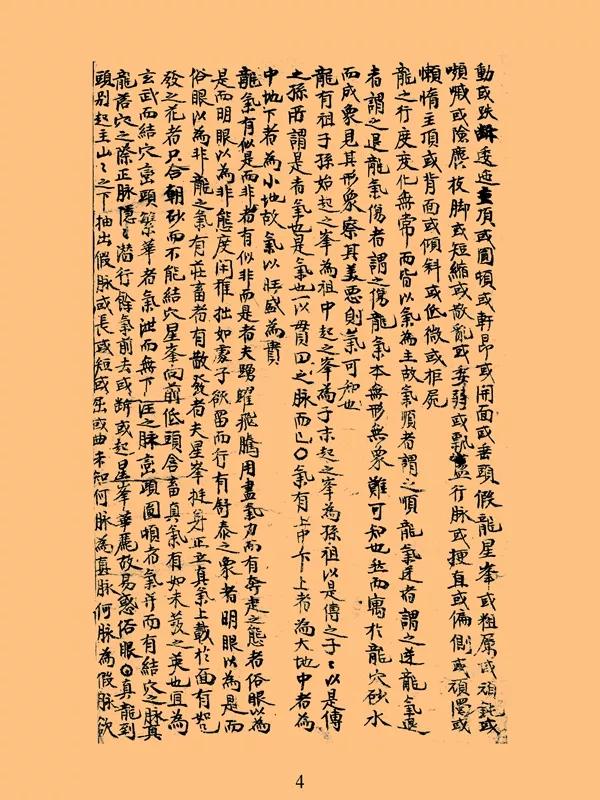 動或跌斷逶迤主頂或圓頓或軒昂或開面或垂頭假龍星峯或粗厲或頑鈍或
嚬嘁或陰壓枝脚或短縮或散亂或委弱或飄蕩行脉或梗直或偏側或頑慢或
懶惰主頂或背面或傾斜或低微或拒屍
龍之行度変化無常而皆以氣為主故氣順者謂之順龍氣逆者謂之逆龍氣退
者謂之退龍氣傷者謂之傷龍氣本無形無象難可知也然而寓於龍穴砂水
而成象見其形象察其美悪則氣可知也
龍有祖子孫始起之峯為祖中起之峯為子末起之峯為孫祖以是傳之子〻以是傳
之孫所謂是者氣也是氣也一以貫四之脉而已〇氣有上中下上者為大地中者為
中地下者為小地故氣以旺盛為貴
龍氣有似是而非者有似非而是者夫踴躍飛騰用盡氣力而有奔走之態者俗眼以為
是而明眼以為非態度闲雅拙如處子欲留而行有舒泰之象者明眼以為是而
俗眼以為非 龍之氣有莊畜者有散發者夫星峯挺身正立真氣上戴於面有如已
發之花者只合朝砂而不能結穴星峯向前低頭含畜真氣有如未發之英也宜為
玄武而結穴巒頭繁華者氣洩而無下注之脉巒頭圓頓者氣浮而有結穴之脉真
龍落穴之際正脉隱〻潜行餘氣前去或断或起星峯華麗故易惑俗眼〇真龍到
頭別起主山〻之下抽出假脉或長或短或屈或曲未知何脉為真脉何脉為假脉欲
4